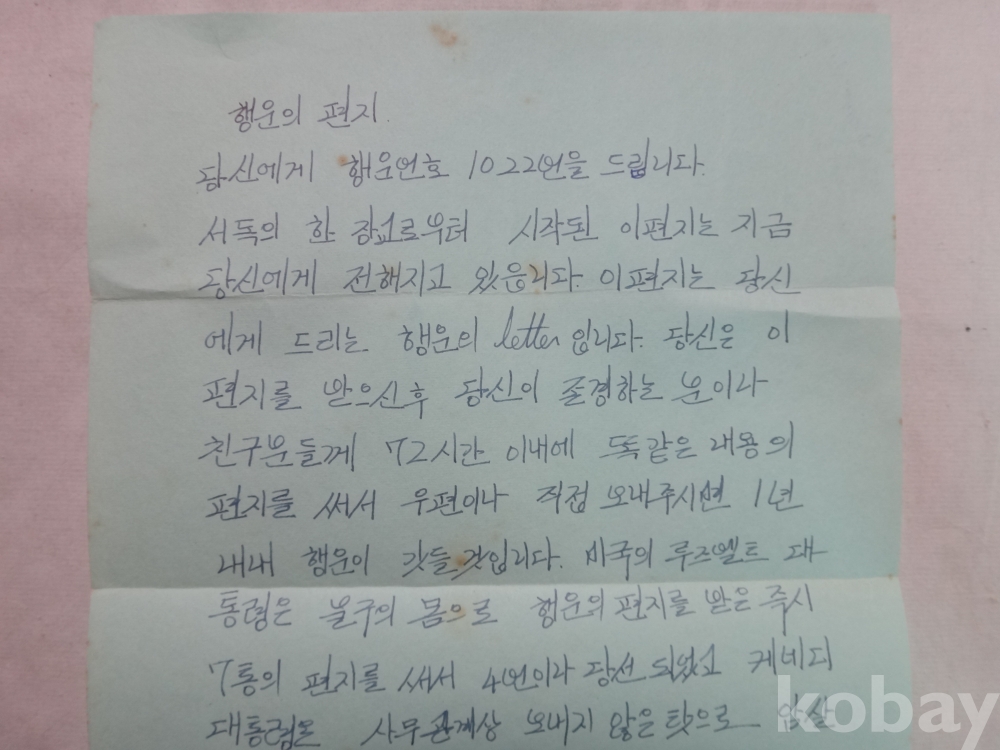 행운의 편지.
당신에게 행운번호 1022번을 드립니다.
서독의 한 장교로부터 시작된 이편지는 지금
당신에게 전해지고 있읍니다. 이편지는 당신
에게 드리는 행운의 letter 입니다. 당신은 이
편지를 받으신후 당신이 존경하는 분이나
친구분들께 72시간 이내에 똑같은 내용의
편지를 써서 우편이나 직접 보내주시면 1년
내내 행운이 깃들 것입니다. 미국의 루즈벨트 대
통령은 불구의 몸으로 행운의 편지를 받은 즉시
7통의 편지를 써서 4번이나 당선 되었고 케네디
대통령은 사무관계상 보내지 않은 탓으로 암살
kobay